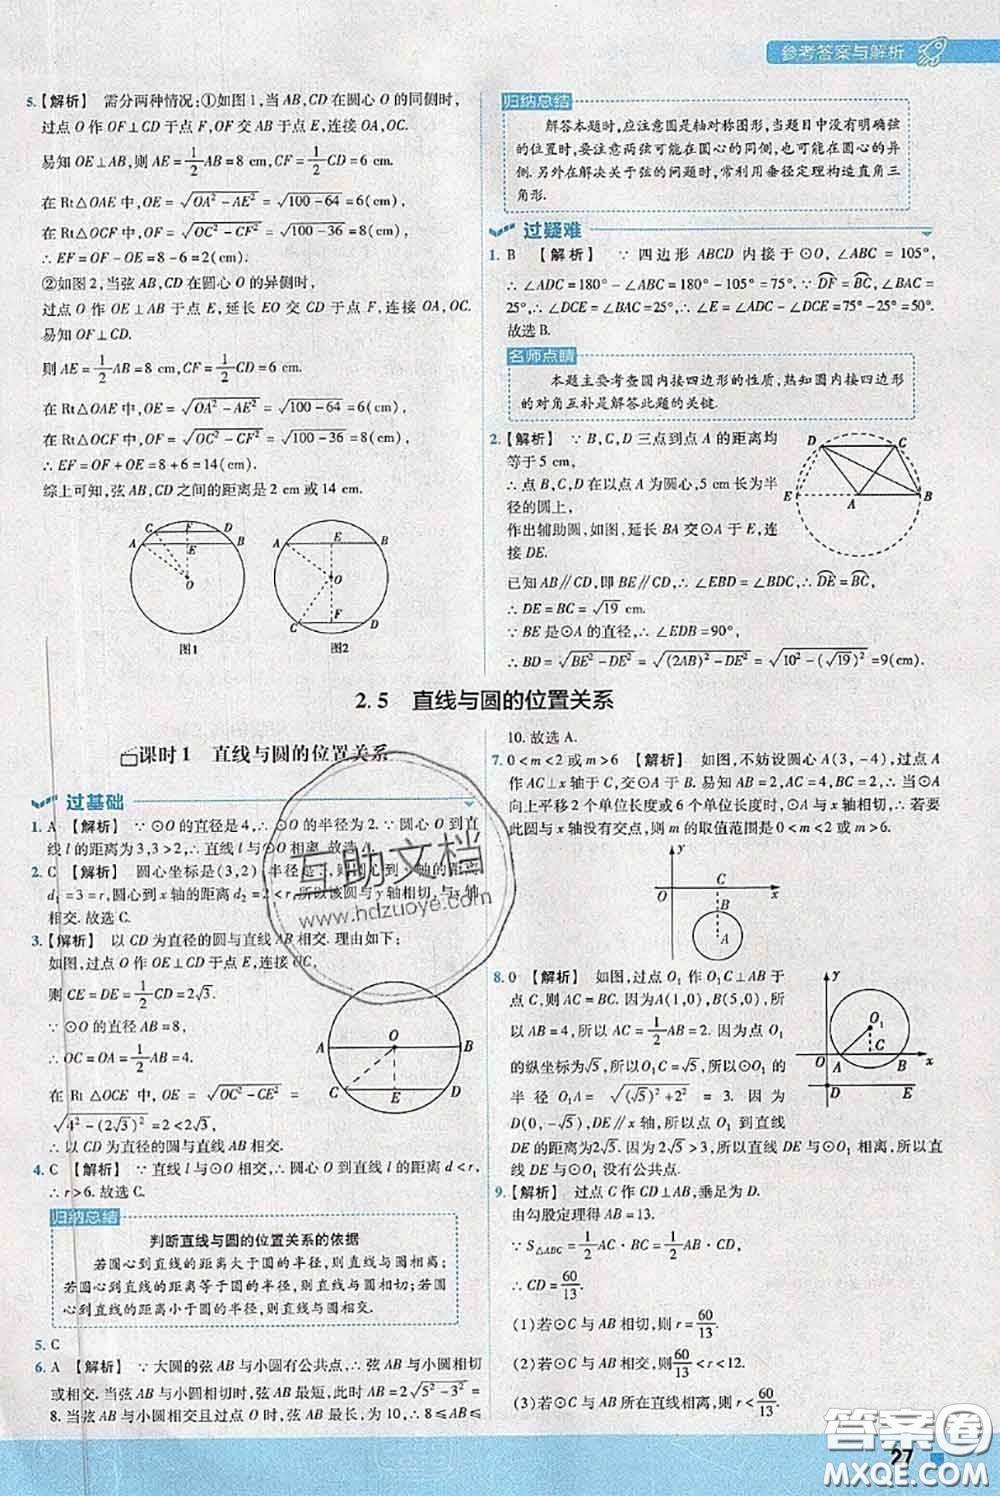 参考答案与解析
5.【解析】 需分两种情况:①如图1,当AB,CD在圆心O的同侧时,
过点O作OF⊥CD于点F,OF交AB于点E,连接OA,OC.
易知OE⊥AB,则AE=1/2AB=8 cm,CF=1/2CD=6 cm.
在Rt△OAE中,OE=√(OA²-AE²)=√(100-64)=6(cm),
在Rt△OCF中,OF=√(OC²-CF²)=√(100-36)=8(cm),
∴EF=OF-OE=8-6=2(cm).
②如图2,当弦AB,CD在圆心O的异侧时,
过点O作OE⊥AB于点E,延长EO交CD于点F,连接OA,OC.
易知OF⊥CD,
则AE=1/2AB=8 cm,CF=1/2CD=6 cm.
在Rt△OAE中,OE=√(OA²-AE²)=√(100-64)=6(cm),
在Rt△OCF中,OF=√(OC²-CF²)=√(100-36)=8(cm),
∴EF=OF+OE=8+6=14(cm).
综上可知,弦AB,CD之间的距离是2 cm或14 cm.
C F D
A E B
O
图1
A E B
O
C F D
图2
归纳总结
解答本题时,应注意圆是轴对称图形,当题目中没有明确弦
的位置时,要注意两弦可能在圆心的同侧,也可能在圆心的异
侧.另外在解决关于弦的问题时,常利用垂径定理构造直角三
角形.
过疑难
1. B 【解析】 ∵四边形ABCD内接于⊙O,∠ABC=105°,
∴∠ADC=180°-∠ABC=180°-105°=75°.∵DF=BC,∠BAC=
25°,∴∠DCE=∠BAC=25°,∴∠E=∠ADC-∠DCE=75°-25°=50°.
故选B.
名师点睛
本题主要考查圆内接四边形的性质,熟知圆内接四边形
的对角互补是解答此题的关键.
2.【解析】 ∵B,C,D三点到点A的距离均
等于5 cm,
∴点B,C,D在以点A为圆心,5 cm长为半
径的圆上,
作出辅助圆,如图,延长BA交⊙A于E,连
接DE.
D C
E A B
已知AB∥CD,即BE∥CD,∴∠EBD=∠BDC,∴DE=BC,
∴DE=BC=√19 cm.
∵BE是⊙A的直径,∴∠EDB=90°,
∴BD=√(BE²-DE²)=√((2AB)²-DE²)=√(10²-(√19)²)=9(cm).
2.5 直线与圆的位置关系
课时1 直线与圆的位置关系
过基础
1. A 【解析】 ∵⊙O的直径是4,∴⊙O的半径为2.∵圆心O到直
线l的距离为3,3>2,∴直线l与⊙O相离.故选A.
2. C 【解析】 圆心坐标是(3,2),半径是3,圆心到y轴的距离
d₁=3=r,圆心到x轴的距离d₂=2<r,所以该圆与y轴相切,与x轴
相交.故选C.
3.【解析】 以CD为直径的圆与直线AB相交.理由如下:
如图,过点O作OE⊥CD于点E,连接OC,
则CE=DE=1/2CD=2√3.
∵⊙O的直径AB=8,
∴OC=OA=1/2AB=4.
在Rt△OCE中,OE=√(OC²-CE²)=
√(4²-(2√3)²)=2<2√3,
∴以CD为直径的圆与直线AB相交.
A O B
C E D
4. C 【解析】 ∵直线l与⊙O相交,∴圆心O到直线l的距离d<r,
∴r>6.故选C.
归纳总结
判断直线与圆的位置关系的依据
若圆心到直线的距离大于圆的半径,则直线与圆相离;
若圆心到直线的距离等于圆的半径,则直线与圆相切;若
圆心到直线的距离小于圆的半径,则直线与圆相交.
5. C
6. A 【解析】 ∵大圆的弦AB与小圆有公共点,∴弦AB与小圆相切
或相交.当弦AB与小圆相切时,弦AB最短,此时AB=2√(5²-3²)=
8.当弦AB与小圆相交且过点O时,弦AB最长,为10,∴8≤AB≤
10.故选A.
7. 0<m<2或m>6 【解析】 如图,不妨设圆心A(3,-4),过点A
作AC⊥x轴于C,交⊙A于B.易知AB=2,AC=4,∴BC=2,∴⊙A
向上平移2个单位长度或6个单位长度与x轴相切,∴若要
此圆与x轴没有交点,则m的取值范围是0<m<2或m>6.
y
O C x
B
A
8. 0 【解析】 如图,过点O₁作O₁C⊥AB于
点C,则AC=BC.因为A(1,0),B(5,0),所
以AB=4,所以AC=1/2AB=2.因为点O₁
的纵坐标为√5,所以O₁C=√5,所以⊙O₁的
半径O₁A=√((√5)²+2²)=3.因为
D(0,-√5),DE∥x轴,所以点O₁到直线
DE的距离为2√5.因为2√5>3,所以直线DE与⊙O₁相离,所以直线
DE与⊙O₁没有公共点.
y
O₁
O A C B x
D E
9.【解析】 过点C作CD⊥AB,垂足为D.
由勾股定理得AB=13.
∵S△ABC=1/2AC·BC=1/2AB·CD,
∴CD=60/13.
(1)若⊙C与AB相切,则r=60/13.
(2)若⊙C与AB相交,则60/13<r<12.
(3)若⊙C与直线AB相离,则r<60/13.
27
互助文档
www.hdzuoye.com
答案圈
MXQE.COM